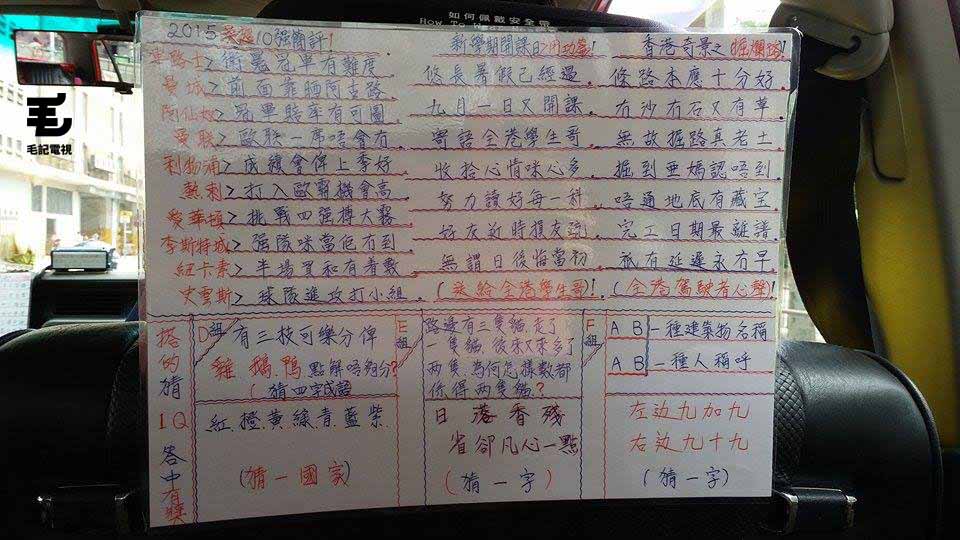 如何佩戴安全帶
How To
毛
毛記電視
2015英超10强簡評!
車路士>衛冕冠軍有難度
曼城>前面靠晒阿圭路
阿仙奴>冠軍賠率有可圖
曼聯>歐聯一席唔會冇
利物浦>成績會俾上季好
熱刺>打入歐霸機會高
愛華頓>挑戰四强搏大霧
李斯特城>强隊咪當佢冇到
紐卡素>半場買和有着數
史雲斯>球隊進攻打小組.
新學期開課日之用功篇!
悠長暑假已經過.
九月一日又開課.
寄語全港學生哥.
收拾心情咪心多.
努力讀好每一科.
好友近時損友疏.
無謂日後悔當初.
(送給全港學生哥)!
香港奇景之掘爛路!
條路本應十分好.
冇沙冇石又有草.
無故掘路真老土.
掘到亜媽認唔到.
唔通地底有藏宝.
完工日期最離譜.
祇有延遲永冇早.
(全港駕駛者心聲)!
搭的猜IQ答中有獎
D組
有三枝可樂分俾
雞.鵝.鴨.點解唔夠分?
(猜四字成語
紅.橙.黃.綠.青.藍.紫.
(猜一國家)
E組
路邊有三隻貓.走了
一隻貓.後來又來多了
兩隻.為何怎樣數都
係得兩隻貓?
日落香殘
省卻凡心一點
(猜一字)
F組
AB一種建築物名稱
AB一種人稱呼
左边九加九
右边九十九
(猜一字)